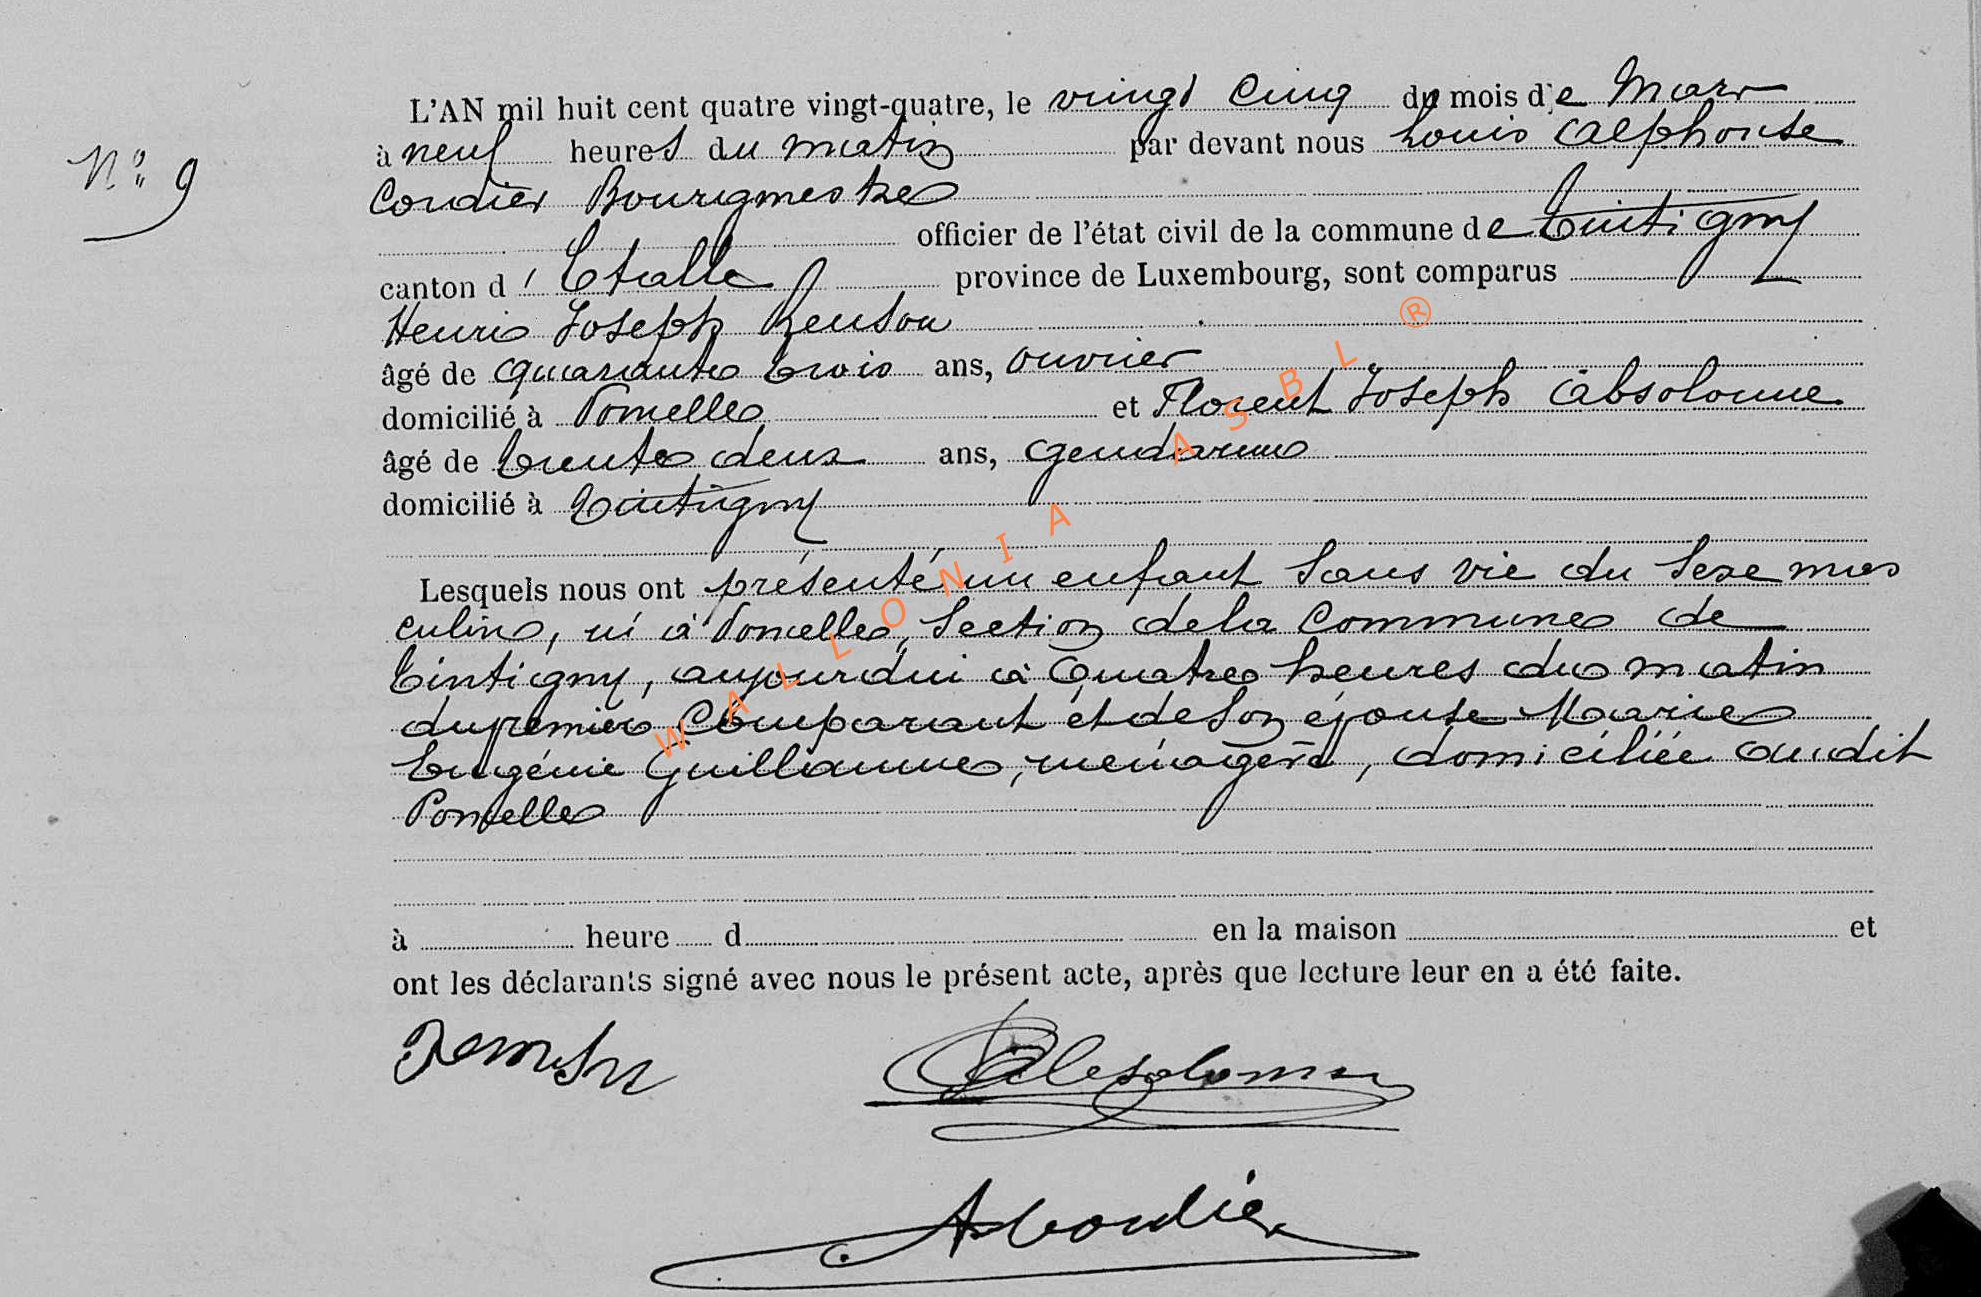 L'AN mil huit cent quatre vingt-quatre, le vingt cinq du mois de Mars
à neuf heures du matin par devant nous Louis Alphonse
N° 9
Cordier Bourgmestre
officier de l'état civil de la commune de Tintigny
canton d'Etalle province de Luxembourg, sont comparus
Henri Joseph Renson
âgé de quarante trois ans, ouvrier
domicilié à Poncelle et Florent Joseph Absolonne
âgé de trente deux ans, gendarme
domicilié à Tintigny
Lesquels nous ont présenté un enfant sans vie du sexe mas
culin, né à Poncelle, section de la Commune de
Tintigny, aujourdui à quatre heures du matin
du premier Comparant et de son épouse Marie
Eugénie Guillaume, ménagère, domiciliée audit
Poncelle
à heure d en la maison et
ont les déclarants signé avec nous le présent acte, après que lecture leur en a été faite.
Renson
Absolonne
A Cordier
WALLONIA ASBL ®